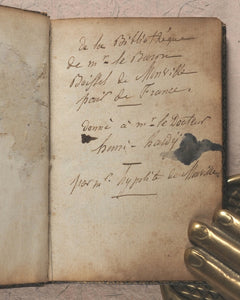 de la Bibliothèque
de mr. le Baron
Boissel de Monville
pair de France.
donné à mr. le Docteur
henri hardÿ
par mr. hypolite de Monville